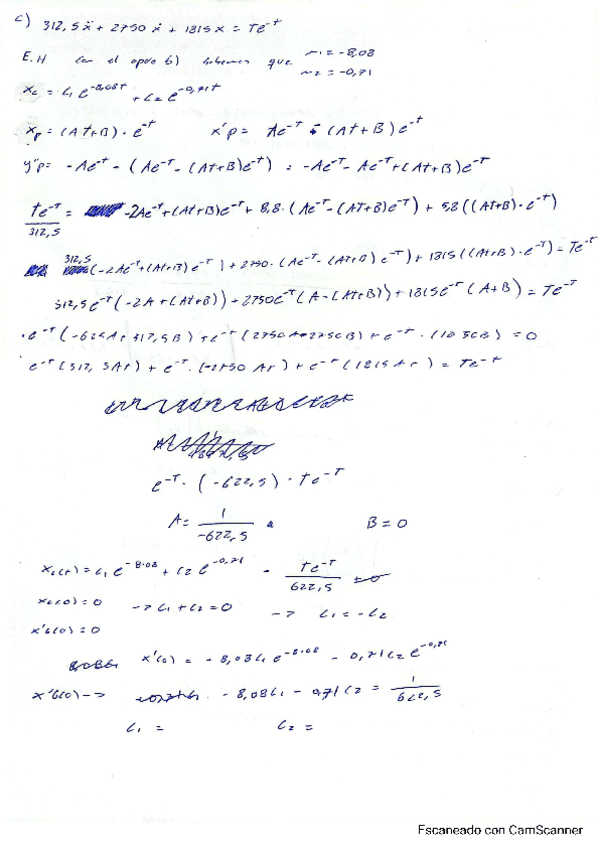 c) 312,5ẍ + 2750 ẋ + 1815 x = Te^-t
E.H Con el apdo b) sabemos que m1 = -8,08
m2 = -0,71
xc = C1 e^-8,08t + C2 e^-0,71t
xp = (At+B)·e^-t x'p = Ae^-t - (At+B)e^-t
y''p = -Ae^-t - (Ae^-t - (At+B)e^-t) = -Ae^-t - Ae^-t + (At+B)e^-t
te^-t/312,5 = -2Ae^-t + (At+B)e^-t + 8,8·(Ae^-t - (At+B)e^-t) + 5,8((At+B)·e^-t)
312,5(-2Ae^-t + (At+B)e^-t) + 2750·(Ae^-t - (At+B)e^-t) + 1815((At+B)·e^-t) = Te^-t
312,5e^-t(-2A + (At+B)) + 2750e^-t(A - (At+B)) + 1815e^-t(A+B) = Te^-t
·e^-t(-625A + 312,5B) + e^-t(2750A - 2750B) + e^-t·( ) = 0
e^-t(312,5At) + e^-t·(-2750At) + e^-t(1815At) = Te^-t
e^-t·(-622,5)·te^-t
A = 1/-622,5 B = 0
xG(t) = C1 e^-8.08 + C2 e^-0,71 - te^-t/622,5
xG(0) = 0 -> C1 + C2 = 0 -> C1 = -C2
x'G(0) = 0
x'(0) = -8,08C1 e^-8.08 - 0,71C2 e^-0,71
x'G(0) -> -8,08C1 - 0,71C2 = 1/622,5
C1 = C2 =
Escaneado con CamScanner